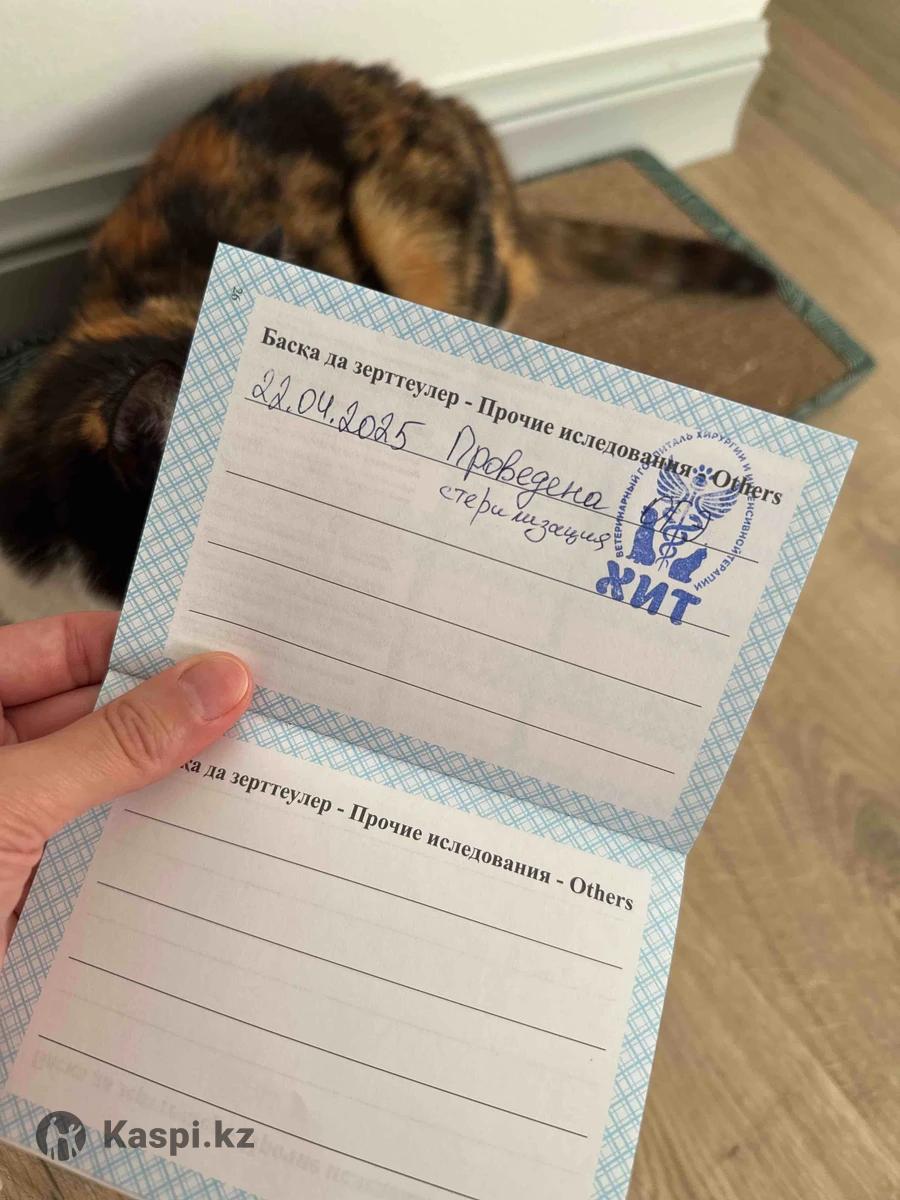 26
Басқа да зерттеулер - Прочие иследования - Others
22.04.2025 Проведена
стерилизация
ВЕТЕРИНАРНЫЙ ГОСПИТАЛЬ ХИРУРГИИ И ИНТЕНСИВНОЙ ТЕРАПИИ
ХИТ
қа да зерттеулер - Прочие иследования - Others
Kaspi.kz